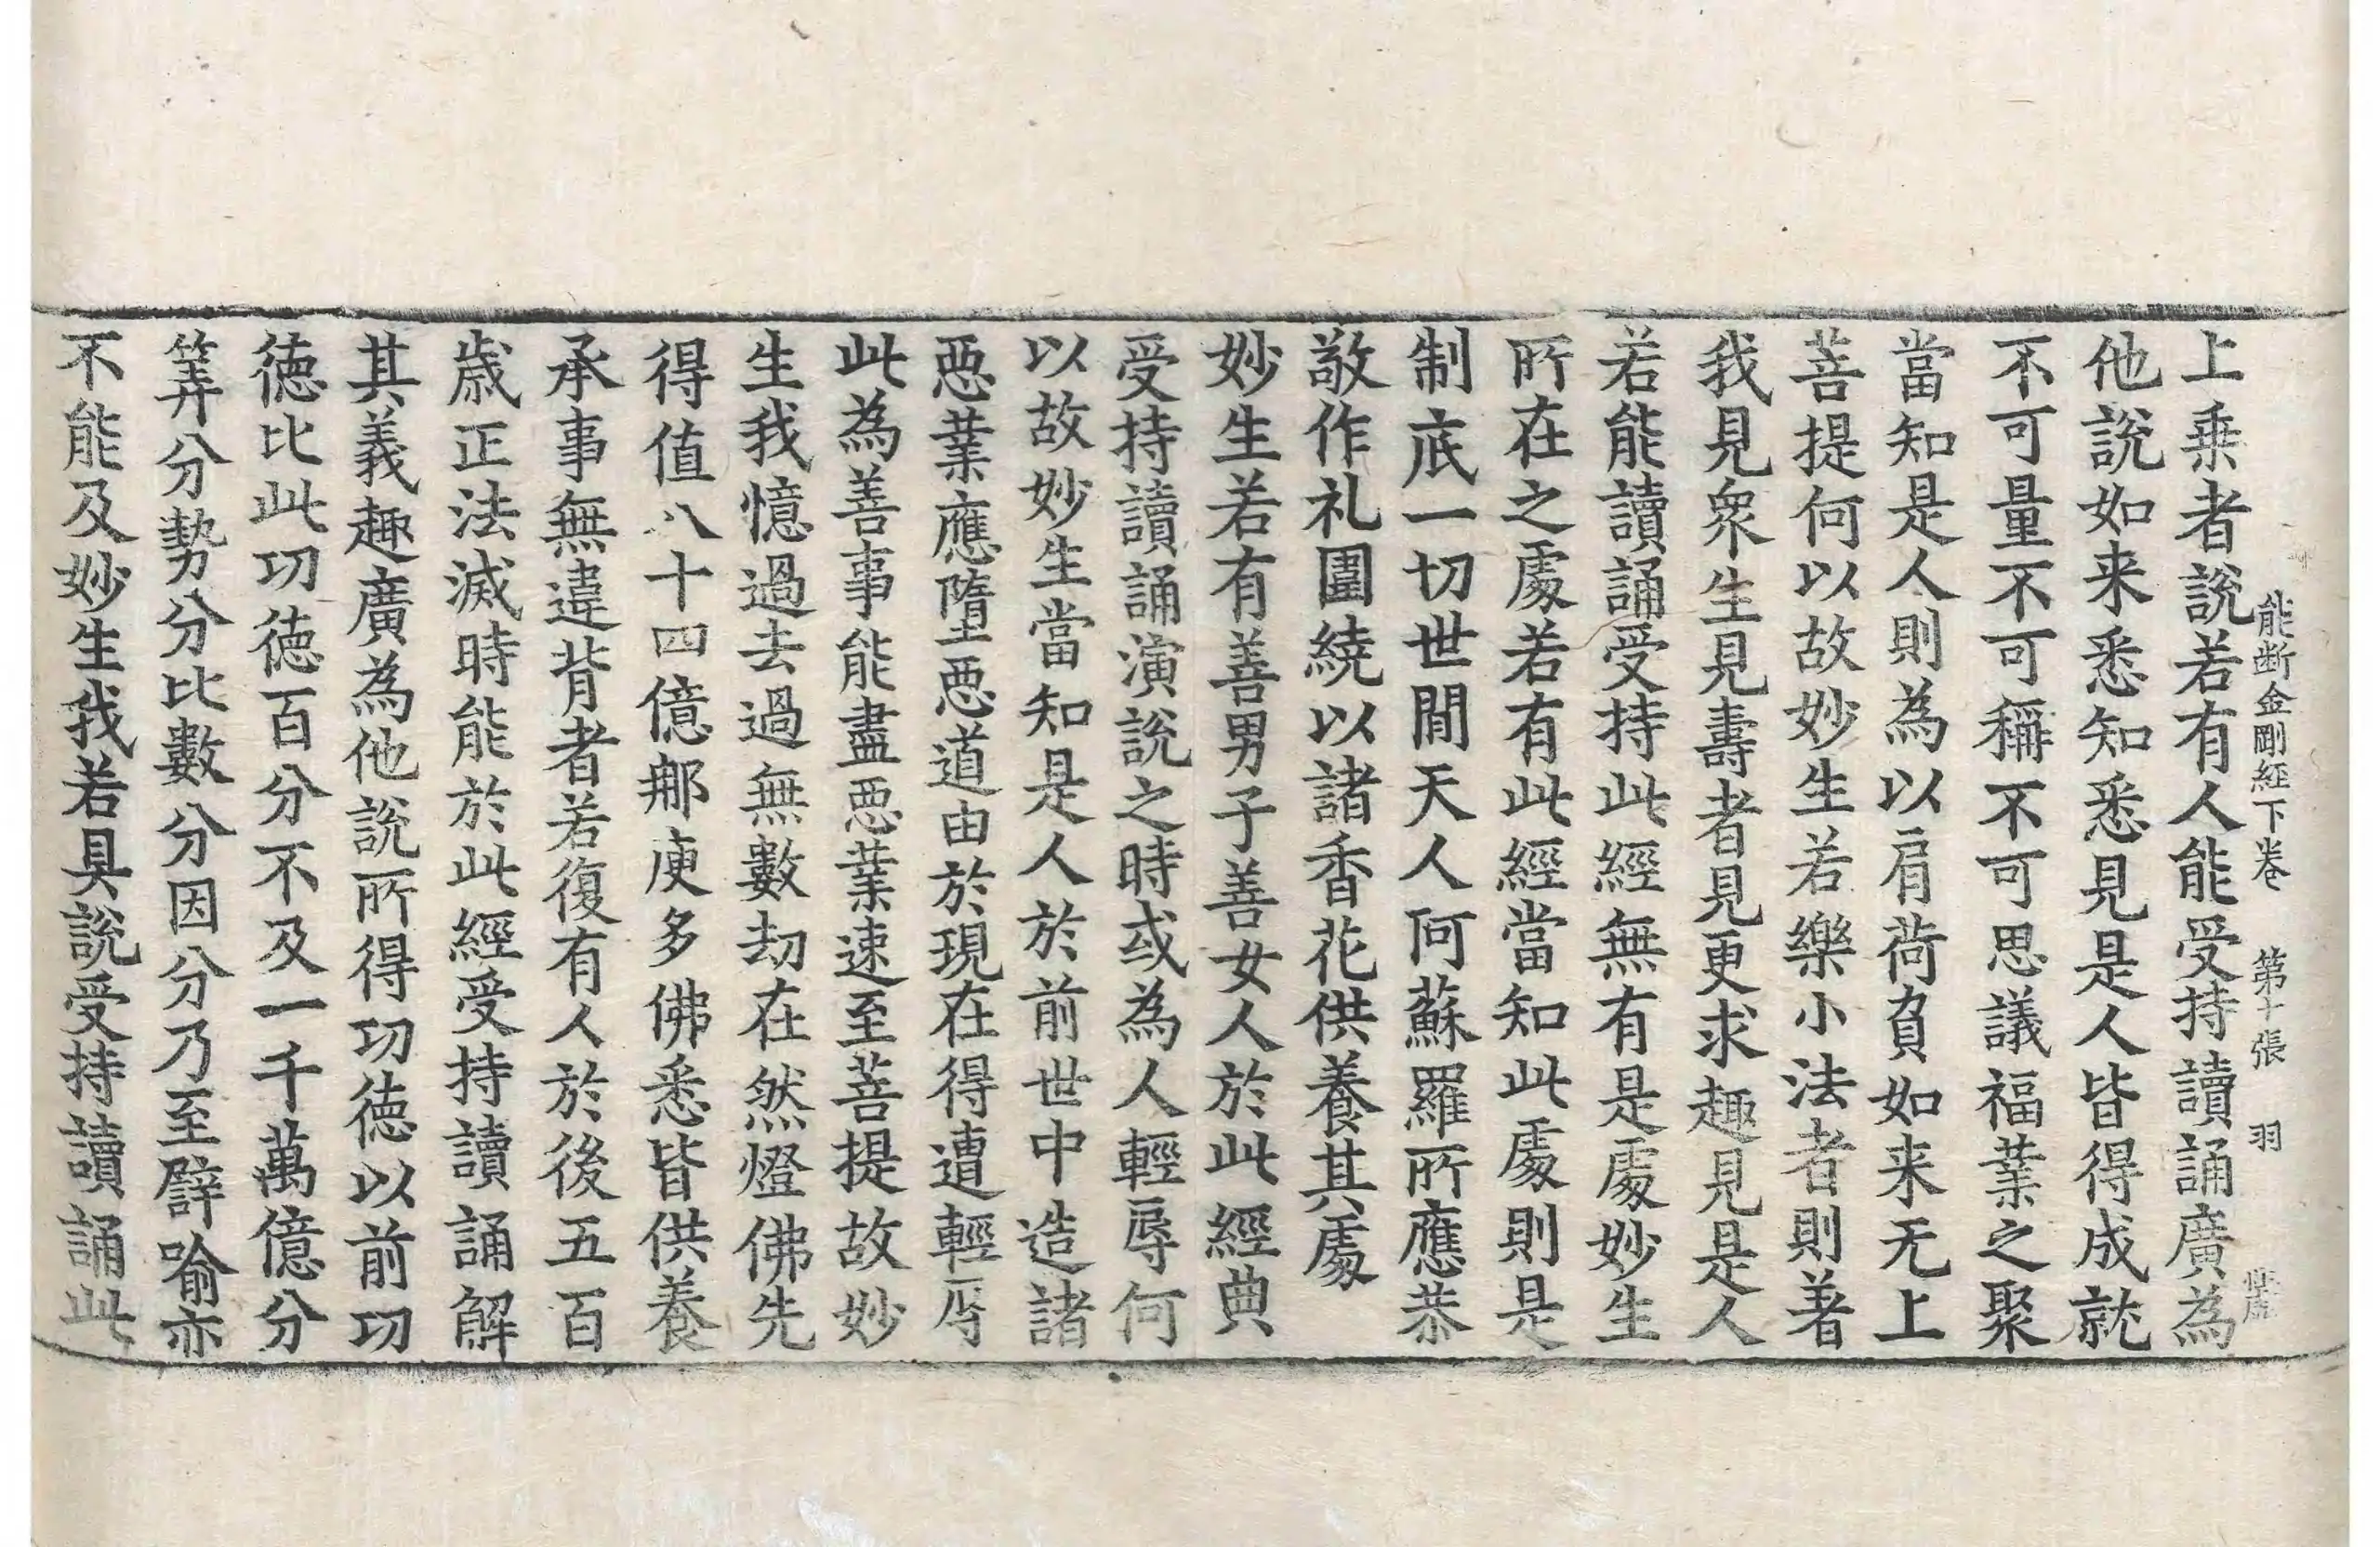 能断金剛經下卷 第十張 羽
上乗者說若有人能受持讀誦廣為
他說如来悉知悉見是人皆得成就
不可量不可稱不可思議福業之聚
當知是人則為以肩荷負如来无上
菩提何以故妙生若樂小法者則著
我見衆生見壽者見更求趣見是人
若能讀誦受持此經無有是處妙生
所在之處若有此經當知此處則是
制底一切世間天人阿蘇羅所應恭
敬作礼圍繞以諸香花供養其處
妙生若有善男子善女人於此經典
受持讀誦演說之時或為人輕辱何
以故妙生當知是人於前世中造諸
惡業應墮惡道由於現在得遭輕辱
此為善事能盡惡業速至菩提故妙
生我憶過去過無數劫在然燈佛先
得值八十四億那庾多佛悉皆供養
承事無違背者若復有人於後五百
歲正法滅時能於此經受持讀誦解
其義趣廣為他說所得功德以前功
德比此功德百分不及一千萬億分
筭分勢分比數分因分乃至譬喻亦
不能及妙生我若具說受持讀誦此